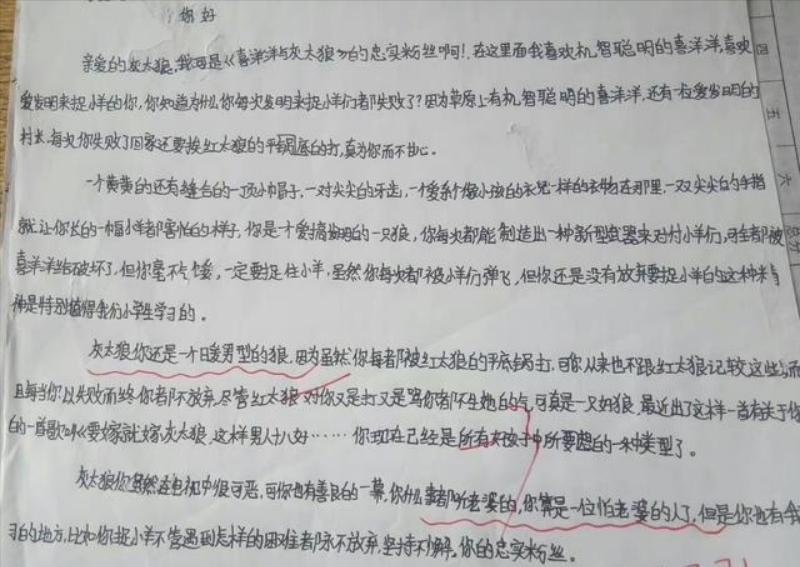 你好
亲爱的灰太狼,我可是《喜洋洋与灰太狼》的忠实粉丝啊!在这里面我喜欢机智聪明的喜洋洋,喜欢
爱发明来捉小羊的你,你知道为什么你每次发明来捉小羊们都失败了?因为草原上有机智聪明的喜洋洋,还有一位爱发明的
村长,每次你失败了回家还要挨红太狼的平锅底的打,真为你而不甘心。
一个黄黄的还有缝合的一顶小帽子,一对尖尖的牙齿,一个爱系个像小孩的衣儿一样的衣物在那里,一双尖尖的手指
就让你长的一幅小羊都害怕的样子,你是一个爱搞发明的一只狼,你每次都能制造出一种新型武器来对付小羊们,可全都被
喜洋洋给破坏了,但你毫不气馁,一定要捉住小羊,虽然你每次都被小羊们弹飞,但你还是没有放弃要捉小羊的这种米青
神是特别值得我们小学生学习的。
灰太狼你还是一个暖男型的狼,因为虽然你每者都被红太狼的平底锅打,可你从来也不跟红太狼记较这些,而
且每当你以失败而终你者都不放弃,尽管红太狼对你又是打又是骂你者都不生她的气,可真是一只好狼,最近出了这样一首有关于你
的一首歌叫《要嫁就嫁灰太狼,这样男人十八好……你现在已经是所有女孩子中所要想的一种类型了。
灰太狼你虽然在电视中很可恶,可你也有善良的一幕,你什么事都听老婆的,你算是一位怕老婆的人了,但是你也有我
习的地方,比如你捉小羊不管遇到怎样的困难者都永不放弃,坚持不懈。你的忠实粉丝。
四
五
六